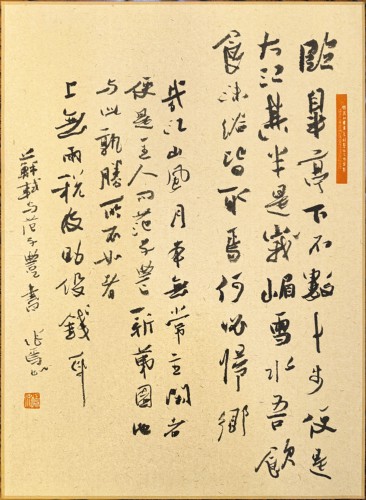 臨皋亭下不數十步便是
大江其半是峨嵋雪水吾飲
食沐浴皆取焉何必歸鄉
哉江山風月本無常主閑者
便是主人問范子豐新第園池
與此孰勝所不如者
上無兩稅及助役錢耳
蘇軾與范子豐書